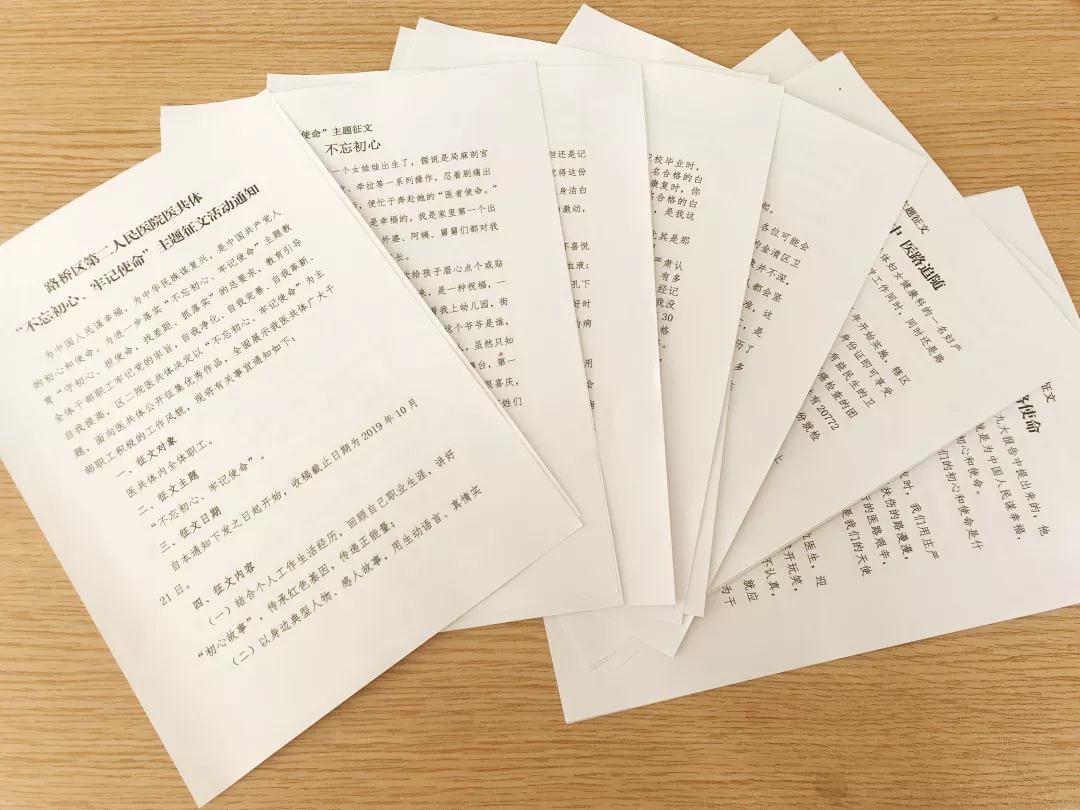 路桥区第二人民医院医共体
“不忘初心、牢记使命”主题征文活动通知
为中国人民谋幸福，为中华民族谋复兴，是中国共产党人
的初心和使命。为进一步落实“不忘初心、牢记使命”主题教
育“守初心、担使命，找差距、抓落实”的总要求，教育引导
全体干部职工牢记党的宗旨，自我净化、自我完善、自我革新、
自我提高，区二院医共体决定以“不忘初心、牢记使命”为主
题，面向医共体公开征集优秀作品，全面展示我医共体广大干
部职工积极的工作风貌，现将有关事宜通知如下：
一、征文对象
医共体内全体职工。
二、征文主题
“不忘初心、牢记使命”。
三、征文日期
自本通知下发之日起开始，收稿截止日期为2019年10月
21日。
四、征文内容
（一）结合个人工作生活经历，回顾自己职业生涯，讲好
“初心故事”，传承红色基因，传递正能量；
（二）以身边典型人物、感人故事，用生动语言、真情实
使命”主题征文
不忘初心
一个女娃娃出生了，据说是局麻剖宫
牵拉等一系列操作，忍着剧痛出
便忙于奔赴她的“医者使命。”
是幸福的，我是家里第一个出
外婆、阿姨、舅舅们都对我
长。
给孩子眉心点个或贴
来，是一种祝福，一
着我上幼儿园，街
这个爷爷是谁，
人，虽然只知
台，第一
很喜庆，
姓们
但还是记
觉得这份
身洁白
激动，
不喜悦
血液：
孔下
好时
为病
校毕业时，
名合格的白
康复时，你
名合格的白
，是我这
尤其是那
严肃认
有多
经记
我没
30
格
起。
各位可能会
金清区卫
并不深，
人都会竖
谁，这
，是
历了
多
主题征文
中 医路追随
体妇女健康科的一名妇产
常工作同时，同时还是路
年开始实施，辖区
身份证即可享受
有益民生的卫
癌检查的团
有20772
份她检
上
征文
使命
九大报告中提出来的，他
就是为中国人民谋幸福，
初心和使命。
们的初心和使命是什
时，我们用庄严
扶伤的路漫漫，
的医路艰辛，
是我们的天使
医生，迎
开玩笑，
不认真，
就应
为干